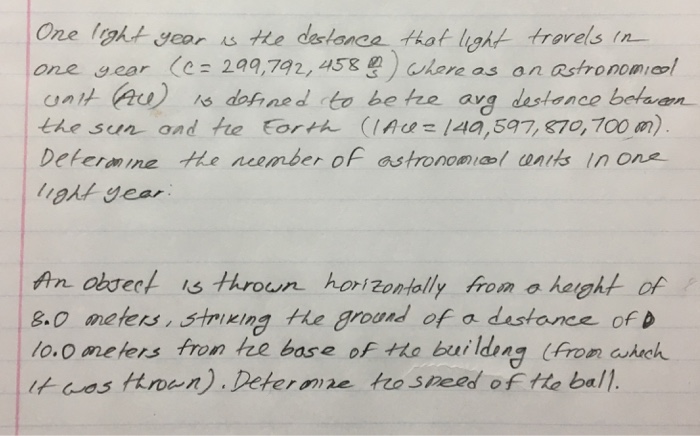 One light year is the destance that light travels in
one year (c = 299,792,458 m/s) whereas an astronomical
unit (AU) is defined to be the avg destance between
the sun and the Earth (1 AU = 149,597,870,700 m).
Determine the number of astronomical units in one
light year:
An object is thrown horizontally from a height of
8.0 meters, striking the ground of a destance of
10.0 meters from the base of the building (from which
it was thrown). Determine the speed of the ball.